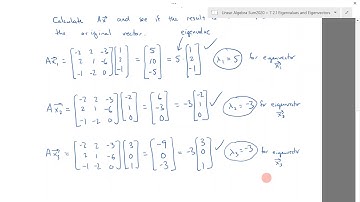 Linear Algebra Sum2020 > 7.2.1 Eigenvalues and Eigenvectors
Calculate Ax⃗ and see if the result is
the original vector. eigenvalue
Ax⃗₁ = [-2 2 -3; 2 1 -6; -1 -2 0] [1; 2; -1] = [5; 10; -5] = 5 [1; 2; -1] ✓ λ₁ = 5 for eigenvector x⃗₁
Ax⃗₂ = [-2 2 -3; 2 1 -6; -1 -2 0] [-2; 1; 0] = [6; -3; 0] = -3 [-2; 1; 0] ✓ λ₂ = -3 for eigenvector x⃗₂
Ax⃗₃ = [-2 2 -3; 2 1 -6; -1 -2 0] [3; 0; 1] = [-9; 0; -3] = -3 [3; 0; 1] ✓ λ₃ = -3 for eigenvector x⃗₃